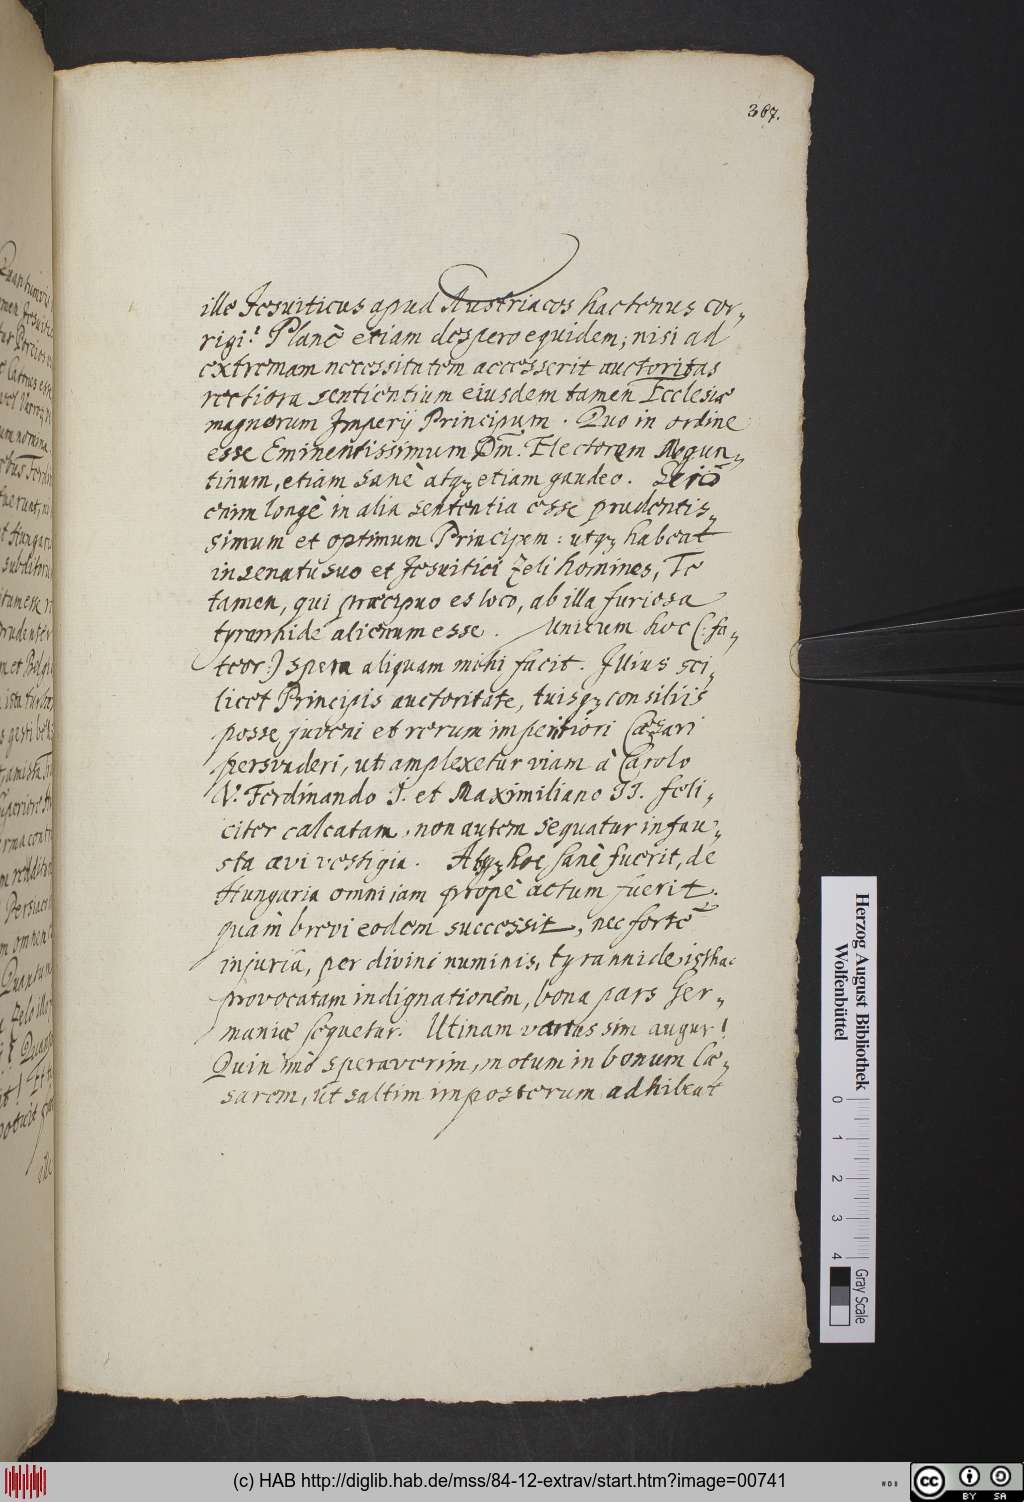 367.
ille Jesuiticus apud Austriacos hactenus cor-
rigi? Planè etiam despero equidem; nisi ad
extremam necessitatem accesserit auctoritas
rectiora sentientium eiusdem tamen Ecclesiæ
magnorum Imperij Principum. Quo in ordine
esse Eminentissimum Dm̄. Electorem Mogun-
tinum, etiam sanè atqꝫ etiam gaudeo. Scio
enim longè in alia sententia esse prudentis-
simum et optimum Principem: utqꝫ habeat
in senatu suo et Jesuitici Zeli homines, Te
tamen, qui præcipuo es loco, ab illa furiosa
tyrannide alienum esse. Unicum hoc (: fa-
teor:) spem aliquam mihi facit. Illius sci-
licet Principis auctoritate, tuisqꝫ consiliis
posse juveni et rerum imperitiori Cæsari
persvaderi, ut amplexetur viam à Carolo
V. Ferdinando I. et Maximiliano II. feli-
citer calcatam, non autem sequatur infau-
sta ævi vestigia. Atqꝫ hoc sanè fuerit, de
Hungaria omni jam propè actum fuerit.
quàm brevi eodem successit, nec fortè
injuriâ, per divini numinis, tyrannide isthac
provocatam indignationem, bona pars Ger-
maniæ sequetur. Utinam vanus sim augur!
Quin imò speraverim, motum in bonum Cæ-
sarem, ut saltim imposterum adhibeat
Herzog August Bibliothek
Wolfenbüttel
0 1 2 3 4
Gray Scale
(c) HAB http://diglib.hab.de/mss/84-12-extrav/start.htm?image=00741
cc BY SA